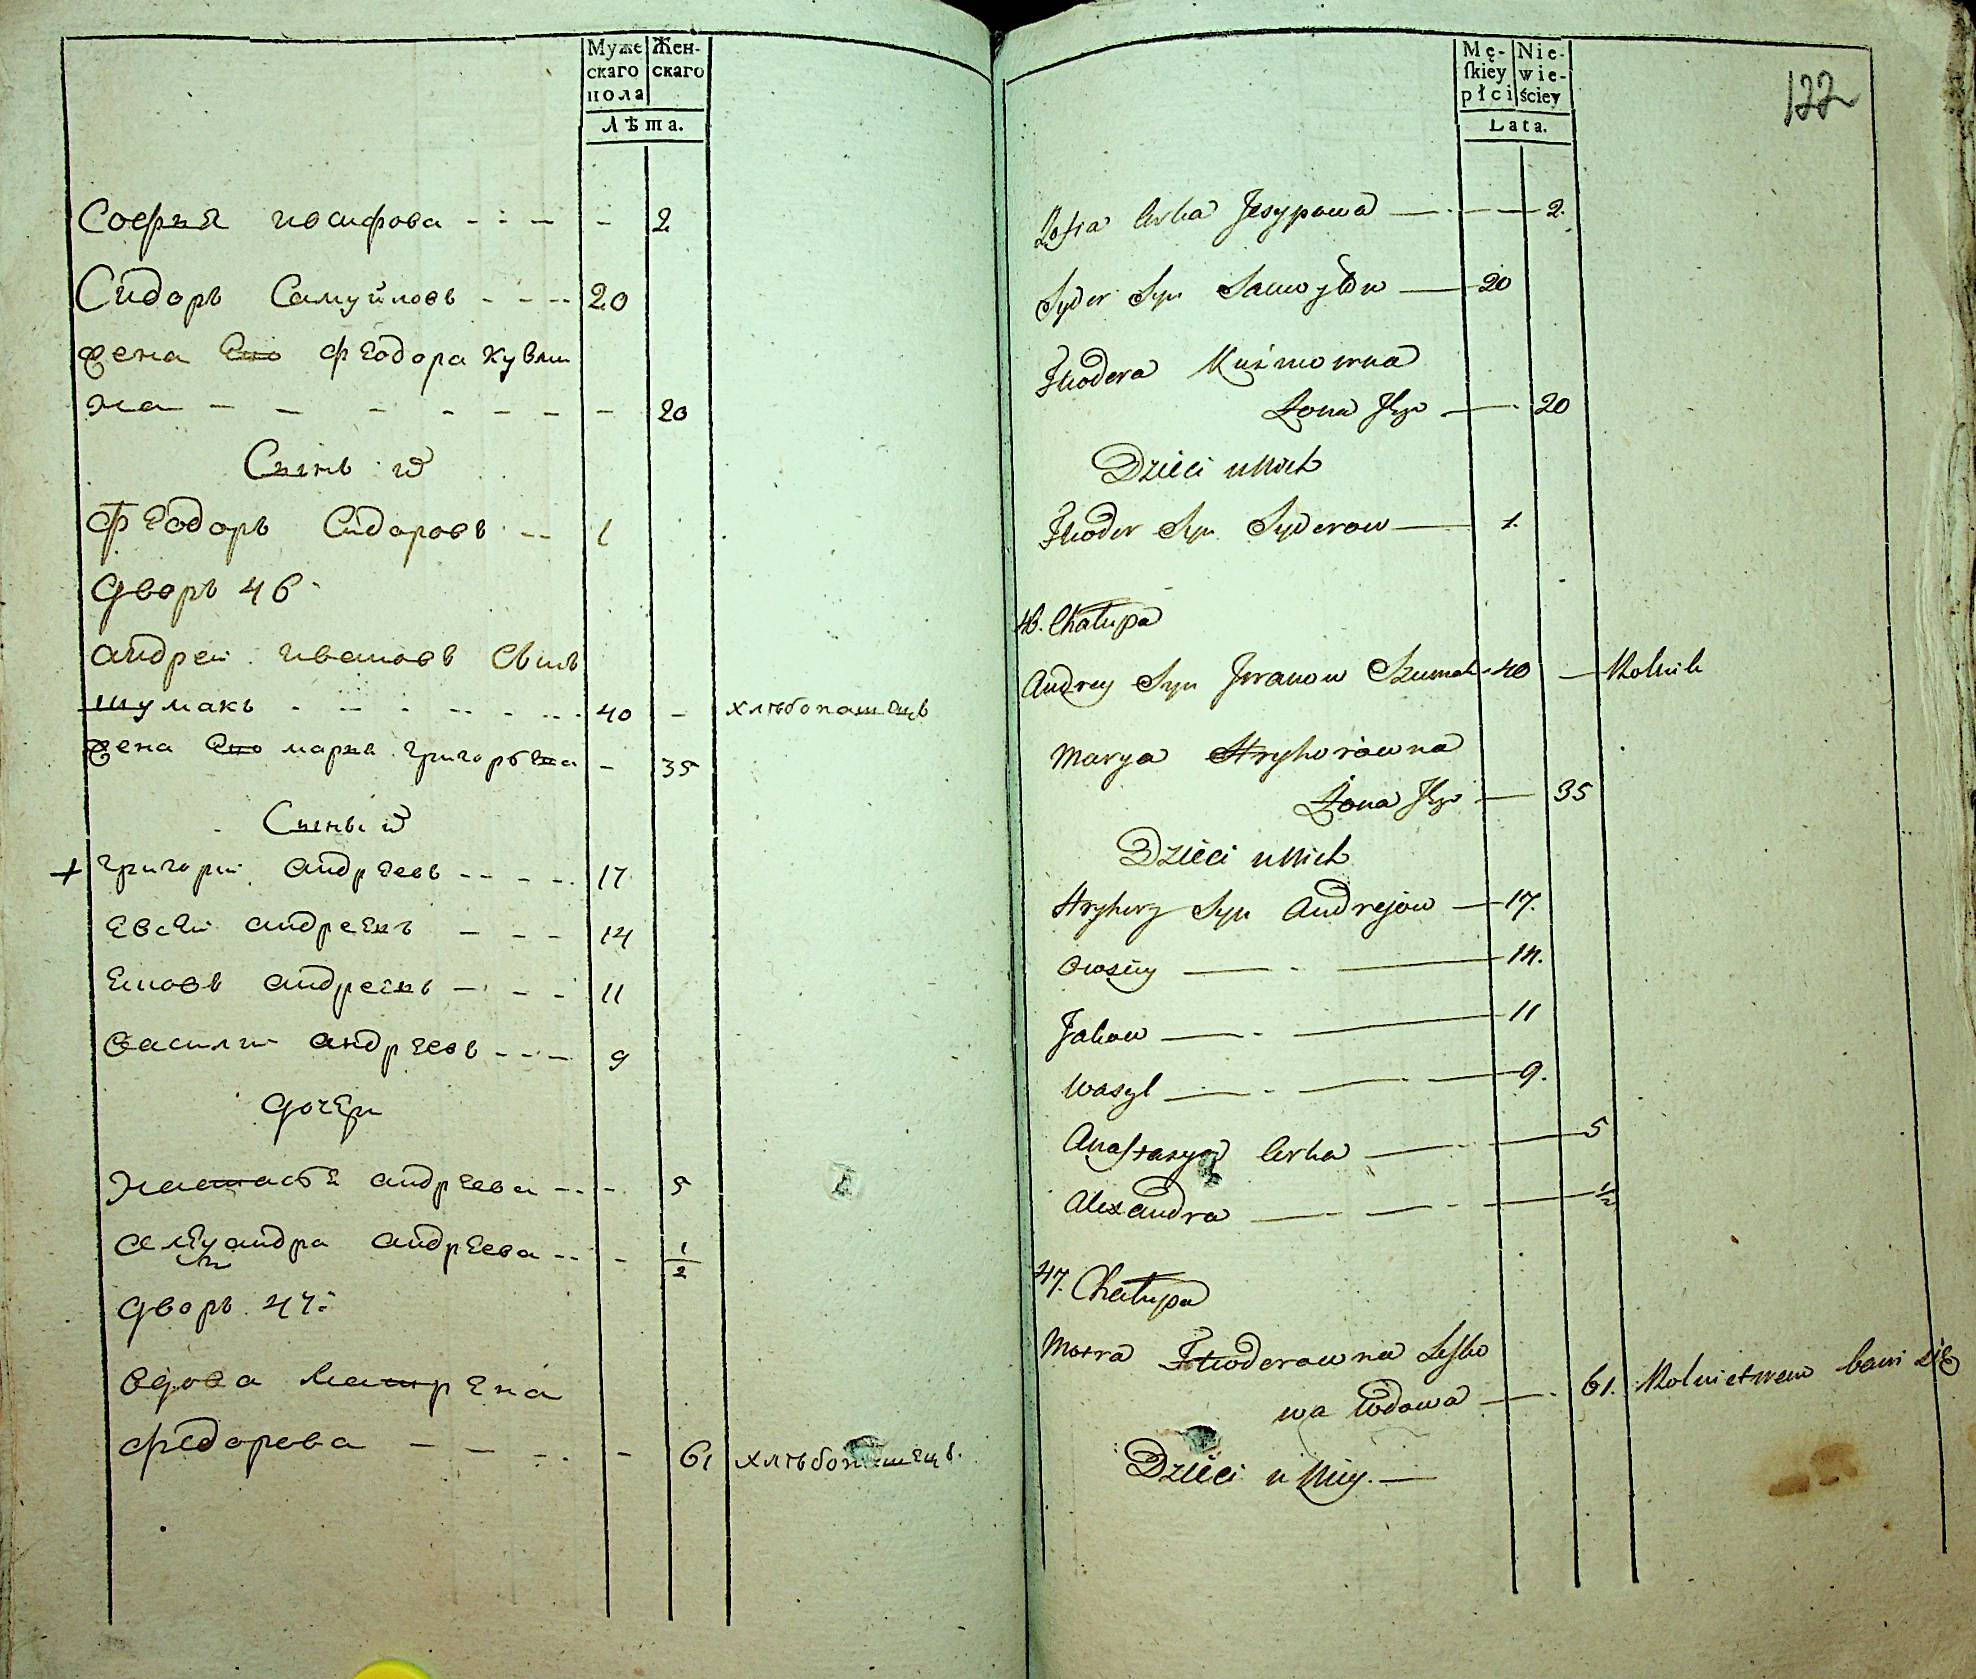 Муже Жен-
скаго скаго
пола
Лѣта.
София иосифова - - - - 2
Сидоръ Самуйловъ - - - 20
жена Его Феодора Кузми
на - - - - - - - 20
Сынъ их
Феодоръ Сидоровъ - - 1
Дворъ 46
андреи ивановъ Сынъ
шумакъ - - - - - - 40 - хлѣбопашецъ
жена Его маръя григорьева - 35
Сыны их
+ григории андреевъ - - - - 17
Евсеи андреевъ - - - 14
Яковъ андреевъ - - - 11
василии андреевъ - - - 9
Дочери
Настасья андреева - - - 5
александра андреева - - - 1/2
Дворъ 47:
вдова Матрена
федорова - - - - - 61 хлѣбопашецъ.
122
Mę- Nie-
ſkiey wie-
płci ściey
Lata.
Zofia Corka Josypowa — 2.
Syder Syn Samoyłow — 20
Fteodora Kuźmowna
Żona Jego — 20
Dzieci u Nich
Fteodor Syn Syderow — 1.
46. Chałupa
Andrey Syn Iwanow Szumak - 40 — Rolnik
Marya Hryhorowna
Żona Jego — 35
Dzieci u Nich
Hryhory Syn Andrejow — 17.
Owsiey — 14.
Jakow — 11
Wasyl — 9.
Anastazya Corka — 5
Alexandra — 1/2
47. Chałupa
Motra Fteoderowna
wa Wdowa — 61. Rolnictwem bawi się
Dzieci u Niey. —